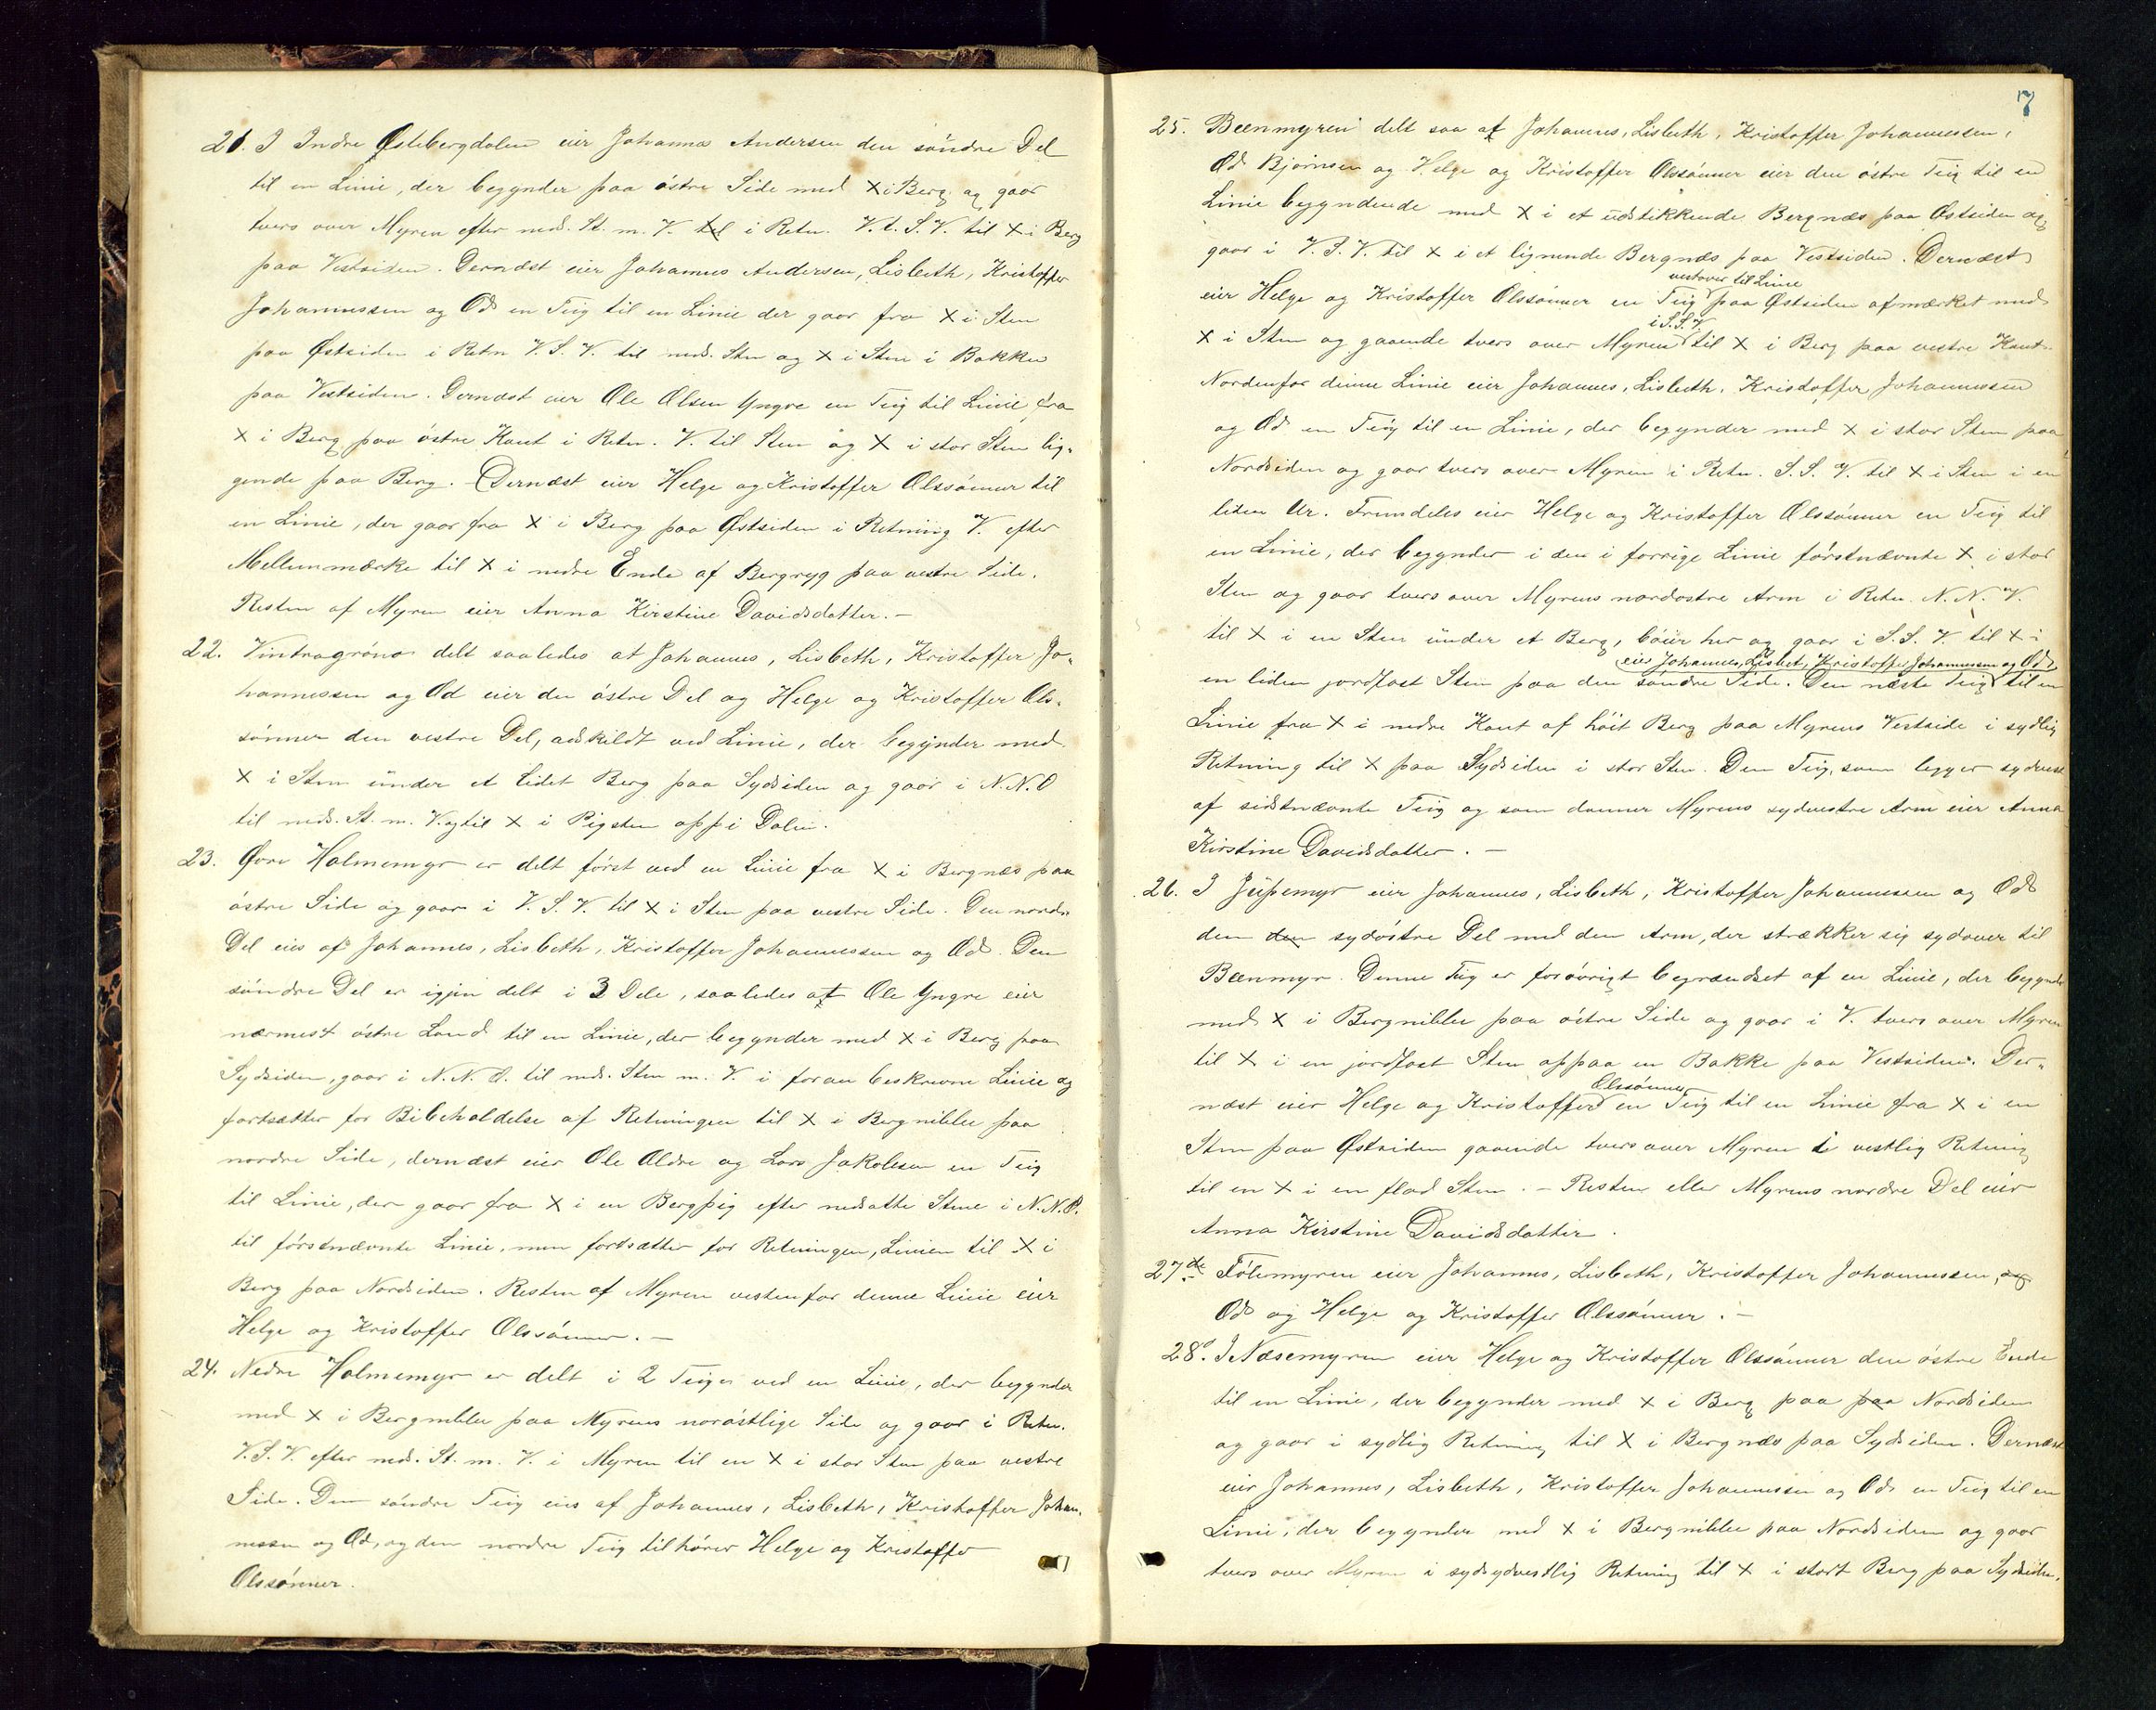 21. I Indre Østebergdalen eier Johannes Andersen den söndre Del
til en Linie, der begynder paa östre Side med X i Berg og gaar
tvers over Myren efter neds. St. m. V. til i Retn. V. t. S. V. til X i Berg
paa Vestsiden. Dernæst eier Johannes Andersen, Lisbeth, Kristoffer
Johannessen og Od en Teig til en Linie der gaar fra X i Sten
paa Østsiden i Retn V. S. V. til neds. Sten og X i Sten i Bakken
paa Vestsiden. Dernæst eier Ole Olsen Yngre en Teig til Linie fra
X i Berg paa östre Kant i Retn. V. til Sten og X i stor Sten lig-
gende paa Berg. Dernæst eier Helge og Kristoffer Olssönner til
en Linie, der gaar fra X i Berg paa Østsiden i Retning V. efter
Mellemmærke til X i nedre Ende af Bergryg paa vestre Side.
Resten af Myren eier Anna Kirstine Davidsdatter. –
22. Vintragröna delt saaledes at Johannes, Lisbeth, Kristoffer Jo-
hannessen og Od eier den östre Del og Helge og Kristoffer Ols-
sönner den vestre Del, adskildt ved Linie, der begynder med
X i Sten under et Lidet Berg paa Sydsiden og gaar i N. N. O
til neds. St. m. V. og til X i Pigsten opp i Dalen.
23. Øvre Holmemyr er delt först ved en Linie fra X i Bergnæs paa
östre Side og gaar i V. S. V. til X i Sten paa vestre Side. Den nordre
Del eies af Johannes, Lisbeth, Kristoffer Johannessen og Od. Den
söndre Del er igjen delt i 3 Dele, saaledes at Ole Yngre eier
nærmest östre Land til en Linie, der begynder med X i Berg paa
Sydsiden, gaar i N. N. O. til neds. Sten m. V. i foran beskrevne Linie og
fortsætter for Bibeholdelse af Retningen til X i Bergnibbe paa
nordre Side, dernæst eier Ole Aldre og Lars Jakobsen en Teig
til Linie, der gaar fra X i en Bergpig efter nedsatte Stene i N. N. O.
til förstnævnte Linie, men fortsætter for Retningen, Linien til X i
Berg paa Nordsiden. Resten af Myren vestenfor denne Linie eier
Helge og Kristoffer Olssönner. –
24. Nedre Holmemyr er delt i 2 Teiger ved en Linie, der begynder
med X i Bergnibbe paa Myrens noröstlige Side og gaar i Retn.
V. S. V. efter neds. St. m. V. i Myren til en X i stor Sten paa vestre
Side. Den söndre Teig eies af Johannes, Lisbeth, Kristoffer Johan-
nessen og Od, og den nordre Teig tilhörer Helge og Kristoffer
Olssönner.
7
25. Beenmyren delt saa at Johannes, Lisbeth, Kristoffer Johannessen,
Od Bjørnsen og Helge og Kristoffer Olssönner eier den östre Teig til en
Linie begyndende med X i et udstikkende Bergnæs paa Østsiden og
gaar i V. S. V. til X i et lignende Bergnæs paa Vestsiden. Dernæst
vestover til Linie
eier Helge og Kristoffer Olssönner en Teig paa Østsiden afmærket med
i S. S. V.
X i Sten og gaaende tvers over Myren til X i Berg paa vestre Kant.
Nordenfor denne Linie eier Johannes, Lisbeth, Kristoffer Johannessen
og Od en Teig til en Linie, der begynder med X i stor Sten paa
Nordsiden og gaar tvers over Myren i Retn. S. S. V. til X i Sten i en
liden Ur. Fremdeles eier Helge og Kristoffer Olssönner en Teig til
en Linie, der begynder i den i forrige Linie förstnævnte X i stor
Sten og gaar tvers over Myrens nordostre Arm i Retn. N. N. V.
til X i en Sten under et Berg, böier her og gaar i S. S. V. til X i
eier Johannes, Lisbet, Kristoffer Johannessen og Od
en liden jordfast Sten paa den söndre Side. Den næste Teig til en
Linie fra X i nedre Kant af höit Berg paa Myrens Vestside i sydlig
Retning til X paa Sydsiden i stor Sten. Den Teig, som ligger sydvest
af sidstnævnte Teig og som danner Myrens sydvestre Arm eier Anna
Kirstine Davidsdatter. –
26. I Jüpemyr eier Johannes, Lisbeth, Kristoffer Johannessen og Od
den den sydöstre Del med den Arm, der strækker sig sydover til
Beenmyr. Denne Teig er forövrigt begrændset af en Linie, der begynder
med X i Bergnibbe paa östre Side og gaar i V. tvers over Myren
til X i en jordfast Sten oppaa en Bakke paa Vestsiden. Der-
Olssönner
næst eier Helge og Kristoffer en Teig til en Linie fra X i en
Sten paa Østsiden gaaende tvers over Myren i vestlig Retning
til en X i en flad Sten. – Resten eller Myrens nordre Del eier
Anna Kirstine Davidsdatter.
27de Fölemyren eier Johannes, Lisbeth, Kristoffer Johannessen, og
Od og Helge og Kristoffer Olssönner. –
28o. I Næsemyren eier Helge og Kristoffer Olssönner den östre Ende
til en Linie, der begynder med X i Berg paa paa Nordsiden
og gaar i sydlig Retning til X i Bergnæs paa Sydsiden. Dernæst
eier Johannes, Lisbeth, Kristoffer Johannessen og Od en Teig til en
Linie, der begynder med X i Bergnibbe paa Nordsiden og gaar
tvers over Myren i sydsydvestlig Retning til X i stort Berg paa Sydsiden.